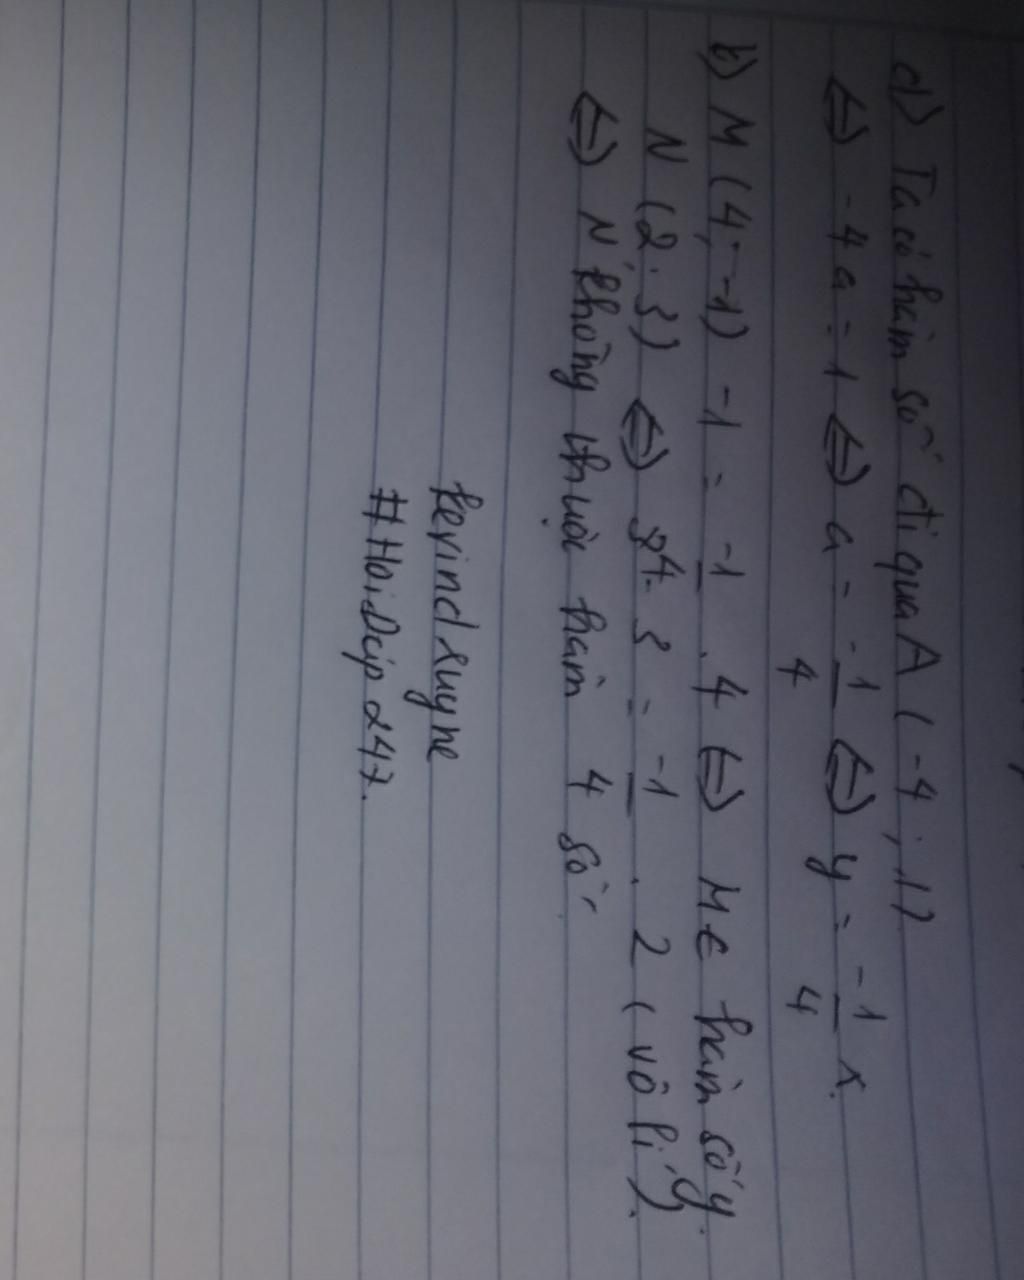 a) Ta có hàm số đi qua A (-4; 1)
⇔ -4a = 1 ⇔ a = -1/4 ⇔ y = -1/4 x.
b) M (4; -1) -1 = -1/4 . 4 ⇔ M ∈ hàm số y.
N (2; 3) ⇔ 3 = -1/4 . 2 (vô lí).
⇔ N không thuộc hàm số.
#HoiDap247.